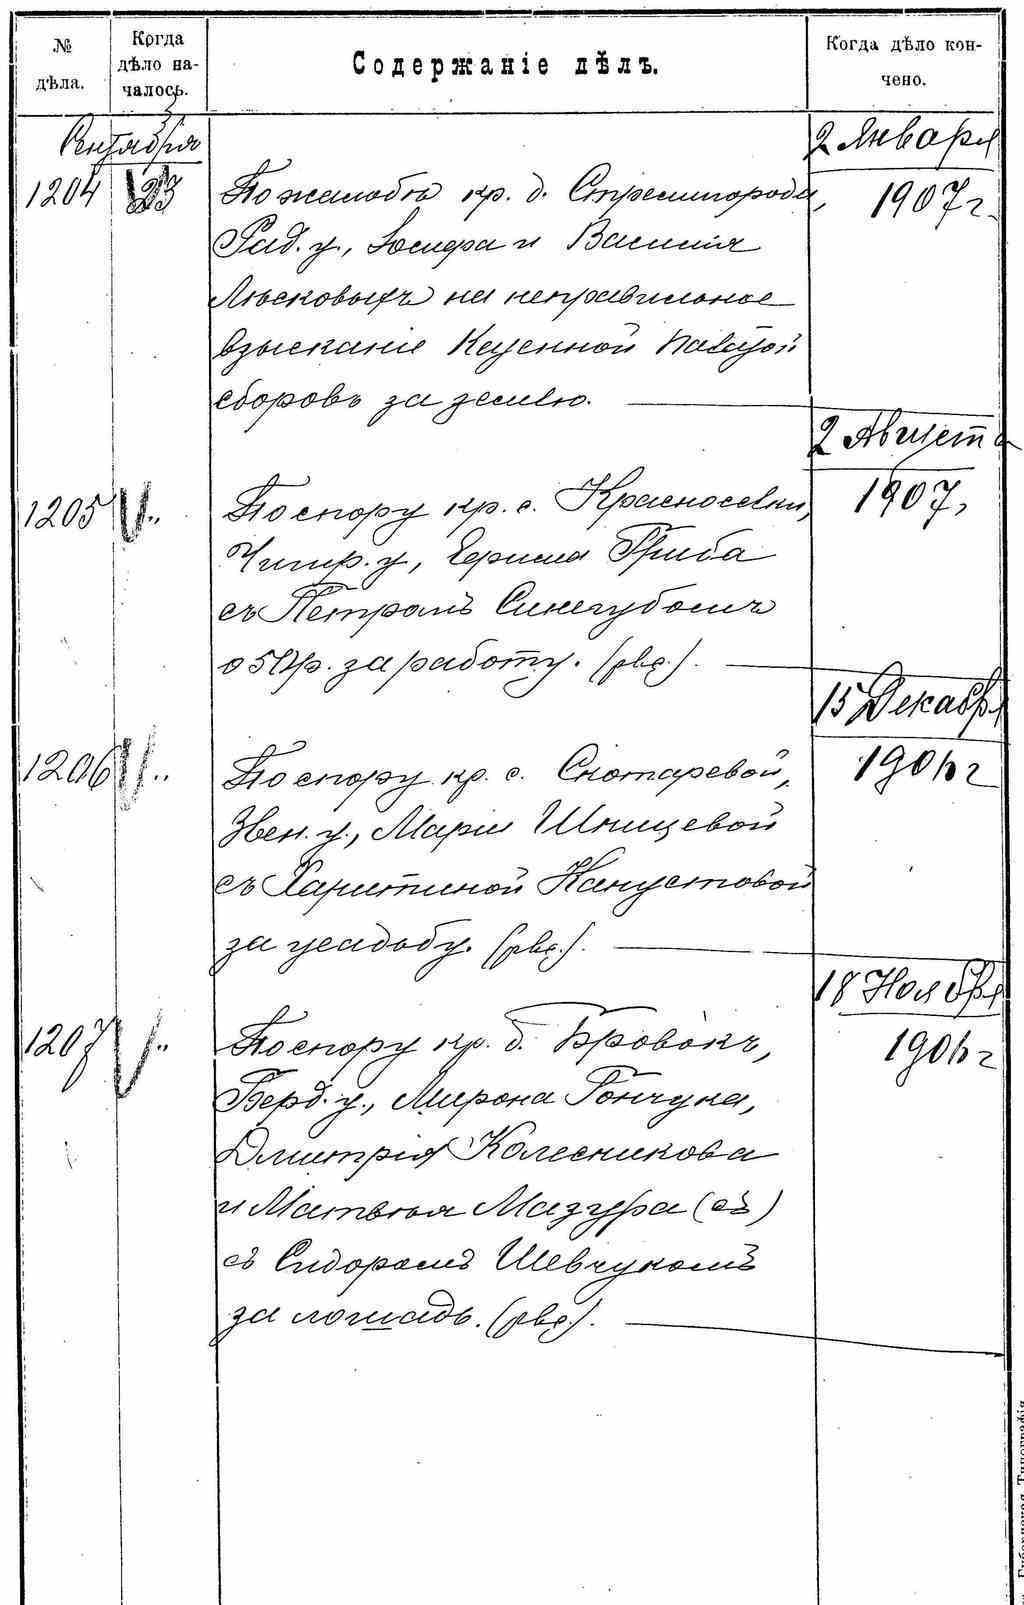 № дѣла.
Когда дѣло на-
чалось.
Содержаніе дѣлъ.
Когда дѣло кон-
чено.
Сентября
2 Января
1204 23 По жалобѣ кр. д. Стремигорода, 1907 г.
Рад. у., Іосифа и Василія
Лѣсковыхъ на неправильное
взысканіе Казенной Палатой
сборовъ за землю.
2 Августа
1205 „ По спору кр. с. Красноселки, 1907 г
Чигир. у., Ефима Гриба
съ Петромъ Синегубомъ
о 50 р. за работу. (рвз.).
15 Декабр
1206 „ По спору кр. с. Скотаревой, 1906 г
Звен. у., Маріи Шпицевой
съ Харитиной Капустовой
за усадьбу. (рвз.).
18 Ноября
1207 „ По спору кр. д. Бровокъ, 1906 г
Берд. у., Мирона Гончука,
Дмитрія Колесникова
и Матвѣя Мазура (съ)
съ Сидоромъ Шевчукомъ
за лошадь. (рвз.).
Губернская Типографія